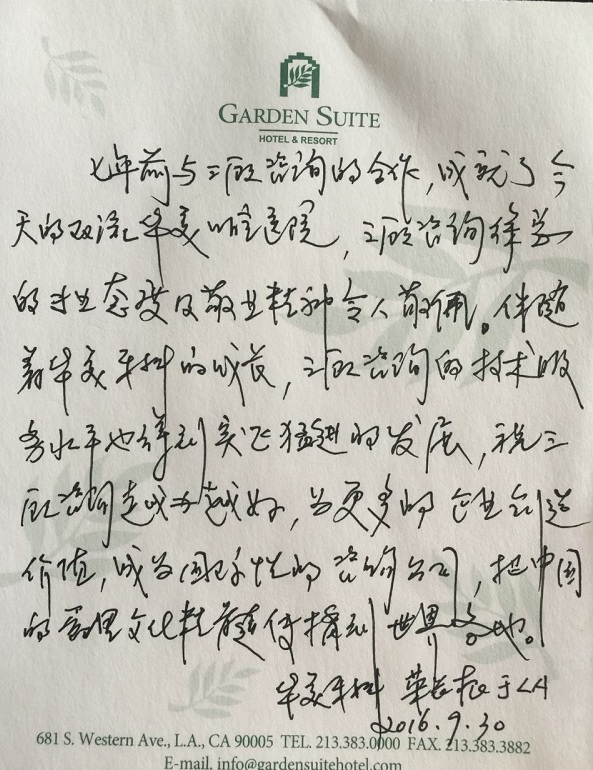 GARDEN SUITE
HOTEL & RESORT
七年前与三顾咨询的合作,成就了今
天的双流华美牙科医院,三顾咨询
的专业态度及敬业精神令人敬佩。伴随
着华美牙科的成长,三顾咨询的技术服
务水平也得到突飞猛进的发展,祝三
顾咨询越办越好,为更多的企业创造
价值,成为国际性的咨询公司,把中国
的管理文化精髓传播到世界各地。
华美牙科 于LA
2016.9.30
681 S. Western Ave., L.A., CA 90005 TEL. 213.383.0000 FAX. 213.383.3882
E-mail. info@gardensuitehotel.com